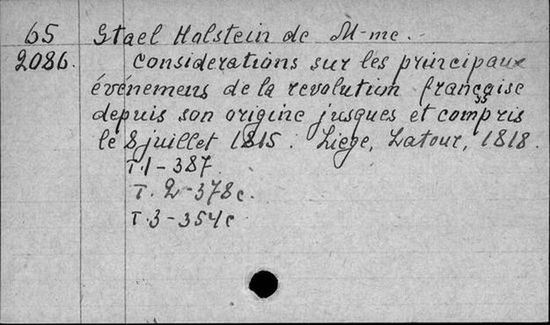 65 Stael Holstein de M-me.
2086. Considerations sur les principaux
événemens de la revolution française
depuis son origine jusques et compris
le 8 juillet 1815. Liege, Latour, 1818.
T.1-387
T. 2-378c.
T.3-354c